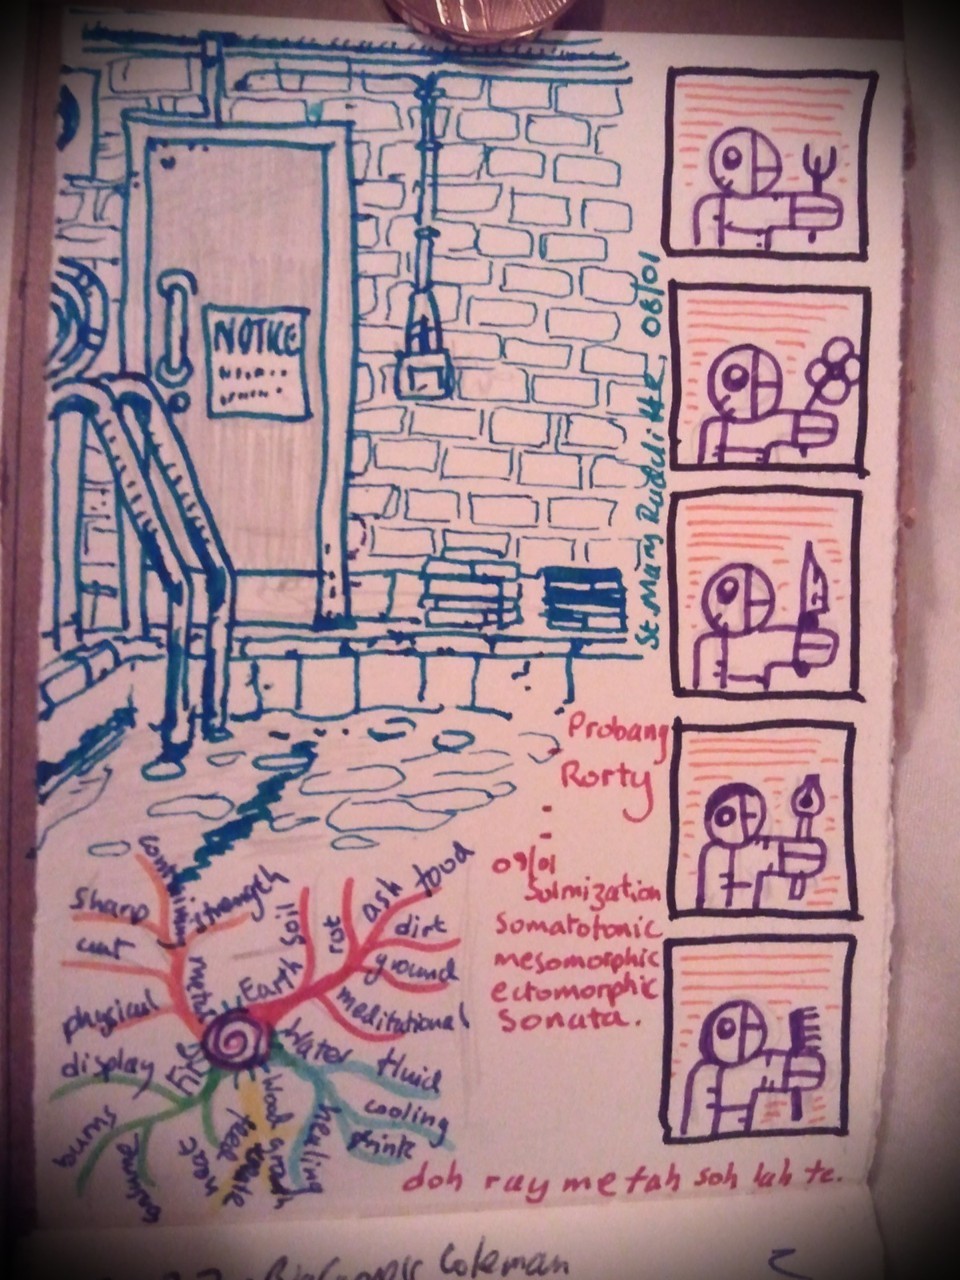 NOTICE
08/01
Probang
Rorty
09/01
Solmization
somatotonic
mesomorphic
ectomorphic
Sonata.
containing
Sharp
cut
strength
metal
physical
soil
rot
ash
food
dirt
ground
Earth
meditational
Water
fluid
cooling
drink
healing
Wood
growth
tree
Fire
display
burns
heat
doh ray me fah soh lah te.
Coleman